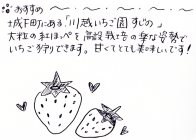 おすすめ
城下町にある「川越いちご園 すじの」
大粒の紅ほっぺを高設栽培の楽な姿勢で
いちご狩りできます。甘くてとても美味しいです!